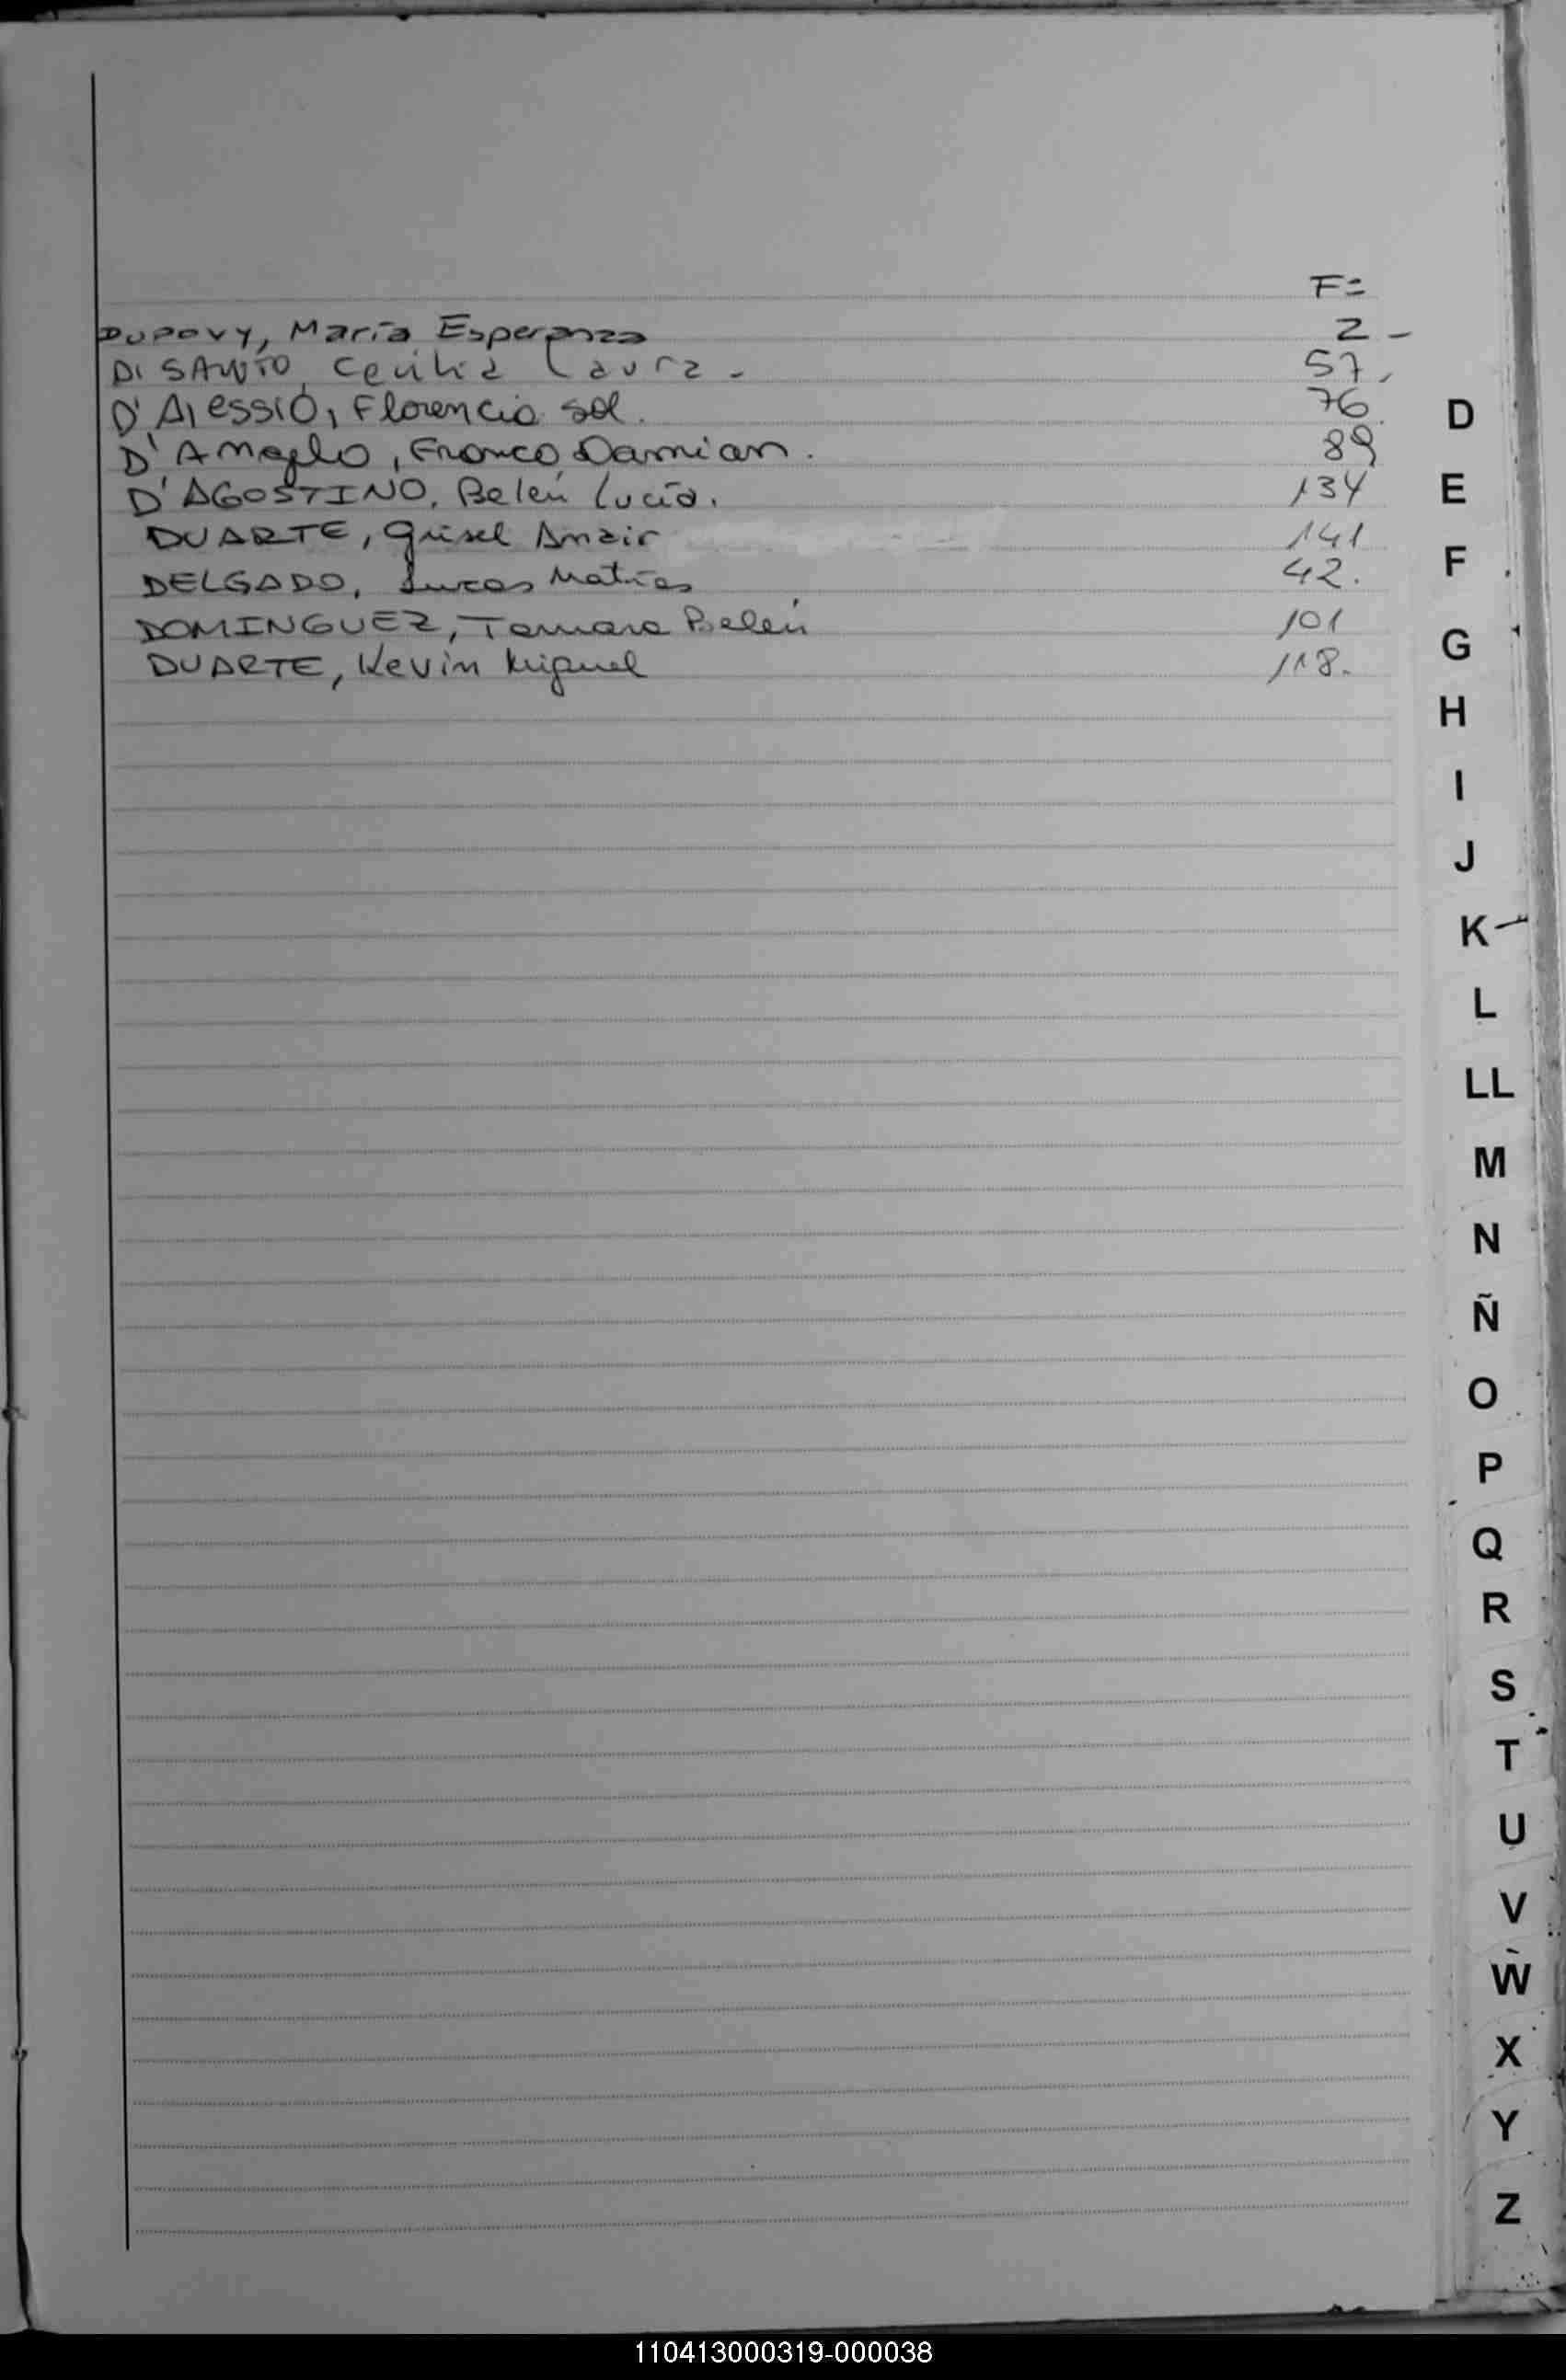 F=
DUPOVY, María Esperanza 2 -
DI SANTO, Cecilia Laura - 57.
D'Alessio, Florencia Sol. 76.
D'Angelo, Franco Damian. 89
D'AGOSTINO, Belén Lucía. 134
DUARTE, Grisel Anair 141
DELGADO, Lucas Matías 42.
DOMINGUEZ, Tamara Belén 101
DUARTE, Kevin Miguel 118.
D
E
F
G
H
I
J
K
L
LL
M
N
Ñ
O
P
Q
R
S
T
U
V
W
X
Y
Z
110413000319-000038